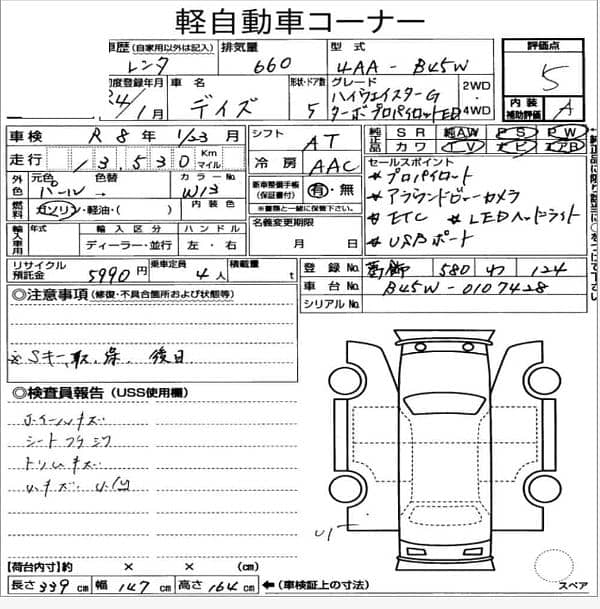 軽自動車コーナー
車歴 (自家用以外は記入) 排気量 型式 評価点
レンタ 660 4AA - B45W 5
初度登録年月 車名 形状・ドア数 グレード 2WD 内装 補助評価 A
R4/1月 デイズ 5 ハイウェイスターG ターボプロパイロットED 4WD
車検 R 8年 1/23月 シフト AT 純正品 SR 純AW PS PW
走行 13,530 Km マイル 冷房 AAC 純正品 カワ TV ナビ エアB
外色 元色 色替 カラーNo セールスポイント
パール → W13 新車整備手帳 (保証書付) 有・無 * プロパイロット
燃料 ガソリン・軽油・( ) 内装色 ※書類と一緒に保管下さい。 * アラウンドビューカメラ
輸入車用 年式 輸入区分 ハンドル 名義変更期限 * ETC * LEDヘッドライト
ディーラー・並行 左・右 月 日 * USBポート
リサイクル預託金 5990円 乗車定員 4人 積載量 t 登録No. 葛飾 580 わ 124
◎注意事項 (修復・不具合箇所および状態等) 車台No. B45W-0107428
シリアルNo.
※Sキー、取、保、後日
◎検査員報告 (USS使用欄)
ホイールキズ
シートフケシワ
トリムキズ
小キズ 小凹
【荷台内寸】約 × × (cm)
長さ 339 cm 幅 147 cm 高さ 164 cm ←(車検証上の寸法) スペア